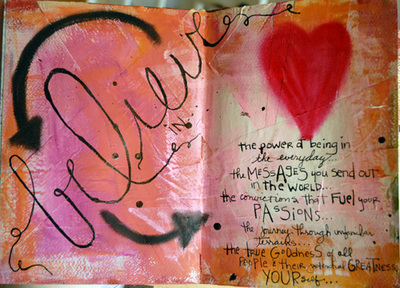 believe
IN
the power of being in
the everyday...
the MESSAGES you send out
in the WORLD...
the convictions that FUEL your
PASSIONS...
the journey through unfamiliar
terrains...
the true GOODNESS of all
PEOPLE & their potential GREATNESS
YOURself...